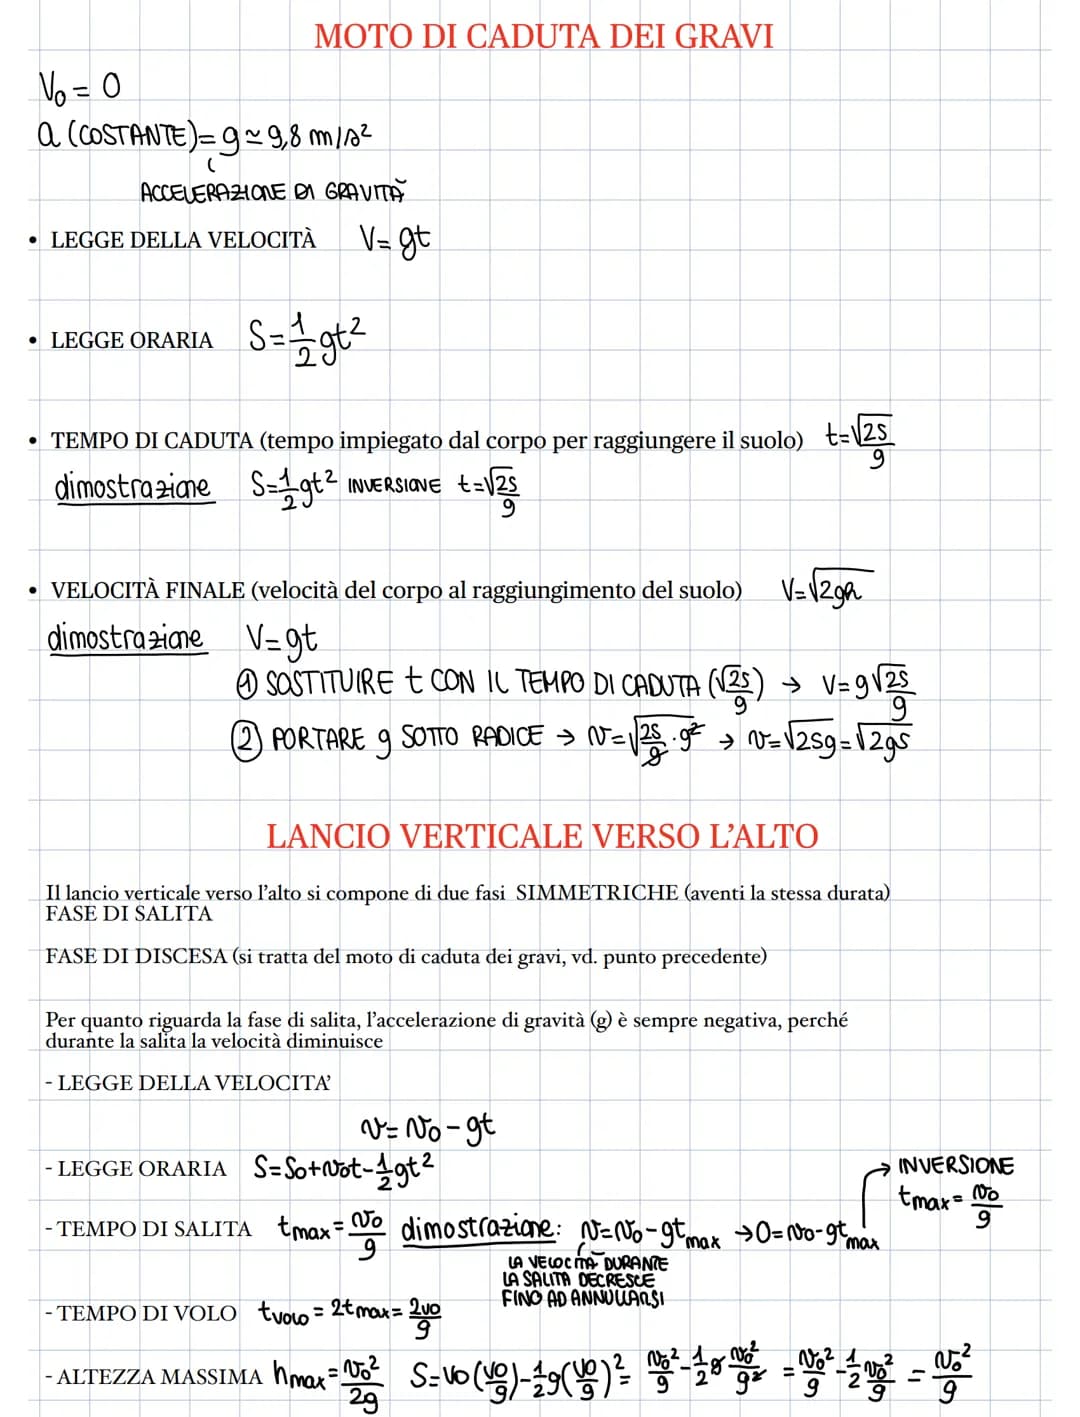 MOTO DI CADUTA DEI GRAVI
V₀ = 0
a (COSTANTE) = g ≃ 9,8 m/s²
ACCELERAZIONE DI GRAVITÀ
• LEGGE DELLA VELOCITÀ V = gt
• LEGGE ORARIA S = 1/2 gt²
• TEMPO DI CADUTA (tempo impiegato dal corpo per raggiungere il suolo) t = √2s/g
dimostrazione S = 1/2 gt² INVERSIONE t = √2s/g
• VELOCITÀ FINALE (velocità del corpo al raggiungimento del suolo) V = √2gh
dimostrazione V = gt
① SOSTITUIRE t CON IL TEMPO DI CADUTA (√2s/g) → V = g√2s/g
② PORTARE g SOTTO RADICE → v = √2s/g · g² → v = √2sg = √2gs
LANCIO VERTICALE VERSO L'ALTO
Il lancio verticale verso l'alto si compone di due fasi SIMMETRICHE (aventi la stessa durata)
FASE DI SALITA
FASE DI DISCESA (si tratta del moto di caduta dei gravi, vd. punto precedente)
Per quanto riguarda la fase di salita, l'accelerazione di gravità (g) è sempre negativa, perché
durante la salita la velocità diminuisce
- LEGGE DELLA VELOCITA'
v = v₀ - gt
- LEGGE ORARIA S = S₀ + v₀t - 1/2 gt²
→ INVERSIONE
tmax = v₀/g
- TEMPO DI SALITA tmax = v₀/g dimostrazione: v = v₀ - gtmax → 0 = v₀ - gtmax
LA VELOCITÀ DURANTE
LA SALITA DECRESCE
FINO AD ANNULLARSI
- TEMPO DI VOLO tvolo = 2tmax = 2v₀/g
- ALTEZZA MASSIMA hmax = v₀²/2g S = v₀(v₀/g) - 1/2 g(v₀/g)² = v₀²/g - 1/2 g v₀²/g² = v₀²/g - 1/2 v₀²/g = v₀²/g